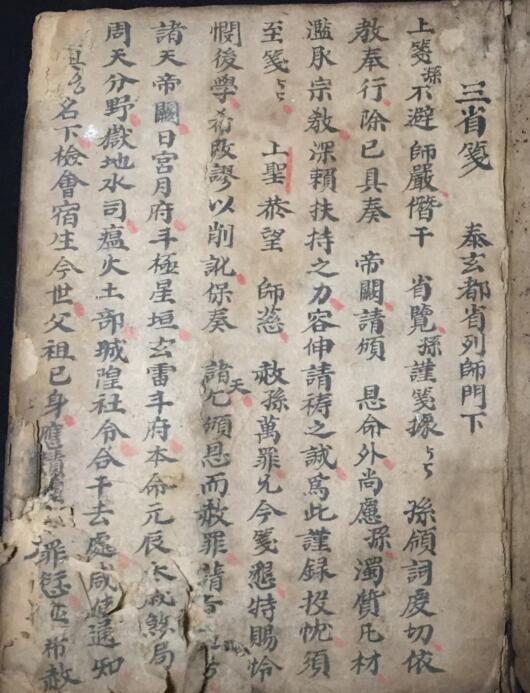 三省箋　泰玄都省列師門下
上箋孫不避師嚴僭干　省覽孫謹箋據　孫領詞虔切依
教奉行除已具奏　帝闕請頒　恩命外尚慮孫濁質凡材
濫叨宗教深賴扶持之力容伸請禱之誠為此謹錄投忱須
至箋　上聖恭望　師慈　赦孫萬罪允今箋懇特賜怜
憫後學　改謬以削訛保奏　諸天　頒恩而赦罪請
諸天帝闕日宮月府斗極星垣玄雷斗府本命元辰太歲煞局
周天分野嶽地水司瘟火土部城隍社令各干去處咸使通知
名下檢會宿生今世父祖己身應　罪愆　赦